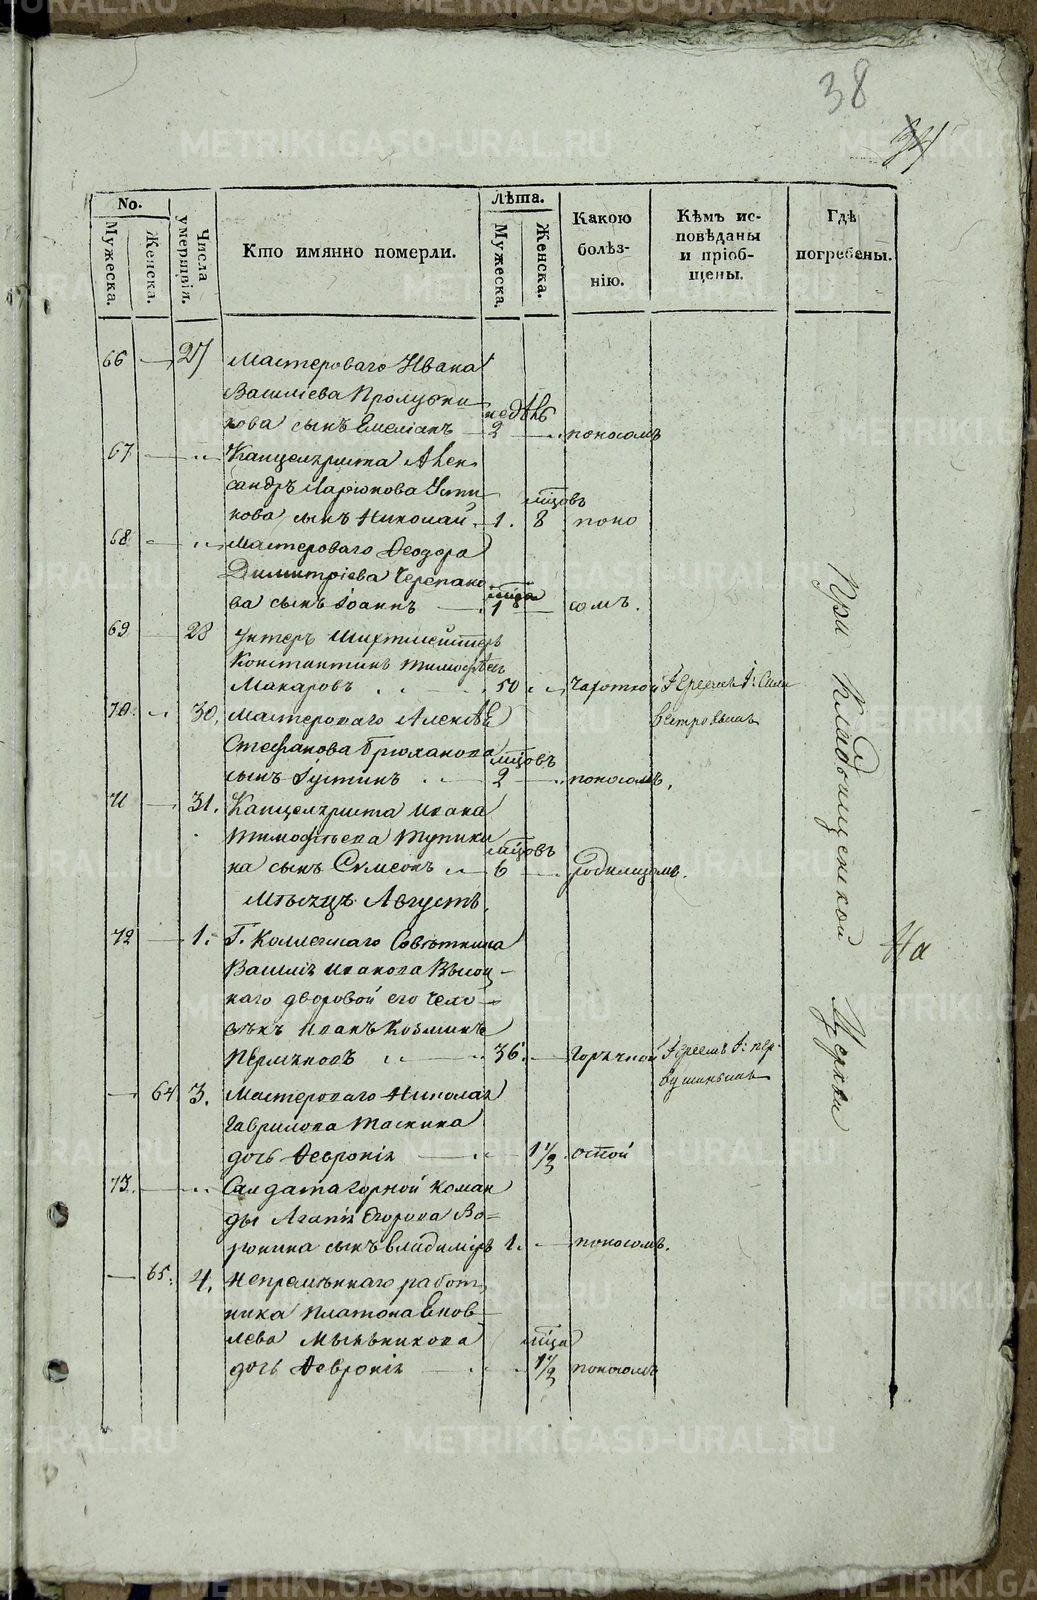 38
No.
Мужеска.
Женска.
Числа умершвія.
Кто имянно померли.
Лѣта.
Мужеска.
Женска.
Какою болѣз-
нію.
Кѣмъ ис-
повѣданы
и пріоб-
щены.
Гдѣ
погребены.
66 27 Мастероваго Ивана
Василіева
кова сынъ Емеліанъ недѣль 2 поносомъ
67 Канцеляриста Алек
сандръ Ларіонова Усти
нова сынъ Николай 1. мцовъ 8 поно
68 Мастероваго Ѳеодора
Димитріева Черепано
ва сынъ Іоаннъ мца 1 сомъ.
69 28 Унтеръ Шихтмейстеръ
Константинъ Тимофѣевъ
Макаровъ 50 чахоткой Іереемъ І:
70. 30. Мастероваго Алексѣя
Стефанова Брюханова мцовъ
сынъ Іустинъ 2 поносомъ.
71 31. Канцеляриста Ивана
Тимофѣева Тупики
на сынъ Сѵмеонъ мцовъ 6 родимцомъ.
Мѣсяцъ Августъ.
72 1. Г. Коллежскаго Совѣтника
Василія Иванова
каго дворовой его чело
вѣкъ Иванъ Козминъ
Пермяковъ 36. горячкой Іереемъ І: пер-
вушинымъ
64 3. Мастероваго Николая
Гаврилова Таскина
дочь Ѳевронія 1 1/2 оспой
73. Салдата горной коман
ды Агапія Егорова Во=
ронина сынъ Владиміръ 1. поносомъ.
65. 4. Непремѣннаго работ
ника Платона
лева Мыльникова мца
дочь Ѳевронія 1 1/2 поносомъ
При Кладбищенской Церкви
На
METRIKI.GASO-URAL.RU